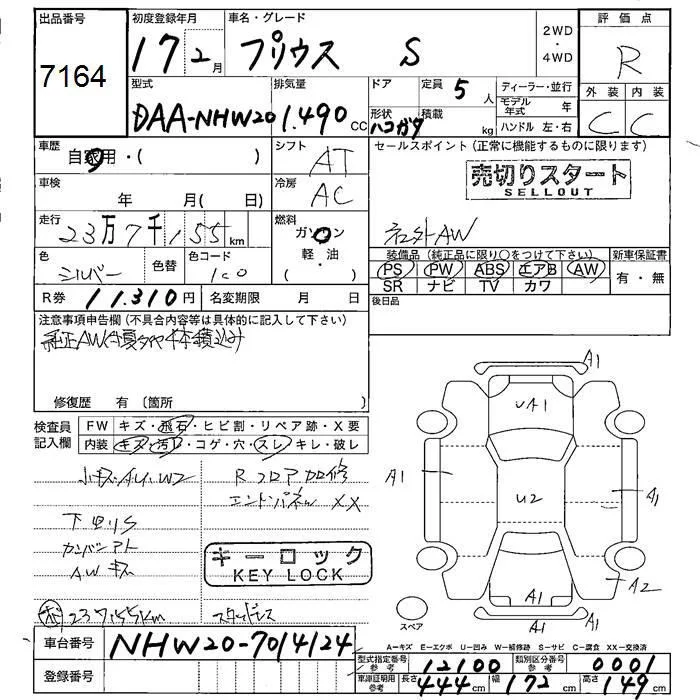 出品番号
7164
初度登録年月
17 2月
車名・グレード
プリウス S
2WD
・
4WD
評価点
R
外装 内装
C C
型式
DAA-NHW20
排気量
1.490cc
ドア
定員 5人
形状 積載
ハコガタ kg
ディーラー・並行
モデル年式 年
ハンドル 左・右
車歴
自家用・( )
シフト
AT
セールスポイント(正常に機能するものに限ります)
売切りスタート
SELLOUT
社外AW
車検
年 月( 日)
冷房
AC
走行
23万7千155km
燃料
ガソリン
・
軽・油
色
シルバー
色替
色コード
1C0
装備品(純正品に限り○をつけて下さい)
PS PW ABS エアB AW
SR ナビ TV カワ
新車保証書
有・無
R券 11.310円
名変期限 月 日
後日品
注意事項申告欄(不具合内容等は具体的に記入して下さい)
純正AW付夏タイヤ4本積込み
修復歴 有〔箇所 〕
検査員
記入欄
FW キズ・飛石・ヒビ割・リペア跡・X要
内装 キズ・汚レ・コゲ・穴・スレ・キレ・破レ
小キズ・AU・W2
Rフロア加修
エンドパネル XX
下回りS
カンバンアト
AWキズ
キーロック
KEY LOCK
237.155km
スタッドレス
A1
UA1
A1
U2
A1
A1
A2
A1
スペア
A─キズ E─エクボ U─凹み W─補修跡 S─サビ C─腐食 XX─交換済
車台番号
NHW20-7014124
登録番号
型式指定番号
参考
12100
類別区分番号
参考
0001
車庫証明用
参考
長さ 444cm
幅 172cm
高さ 149cm